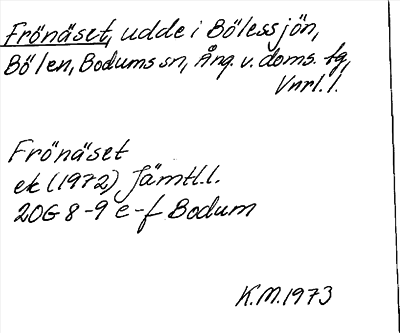 Frönäset, udde i Bölessjön,
Bölen, Bodums sn, Ång. v. doms. tg,
Vnrl. l.
Frönäset
ek (1972) Jämtl. l.
20G 8-9 e-f Bodum
K.M. 1973